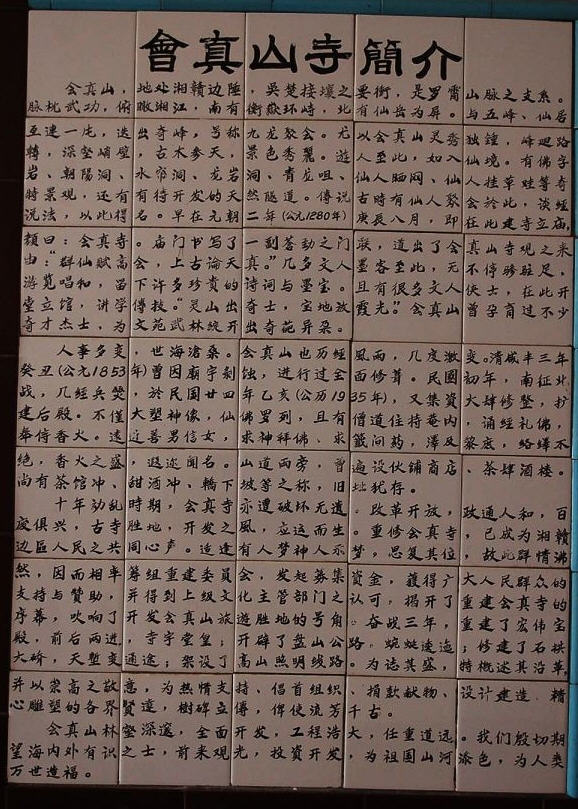 會真山寺簡介
会真山，地处湘赣边陲，吴楚接壤之要衝，是罗霄山脉之支系。
脉枕武功，俯瞰湘江，南有衡嶽环峙，北有仙岳为屏。与五峰、仙居
互連一庑，迭出奇峰，号称九龙聚会。尤以会真山灵秀独鍾，峰迴路
轉，深壑峭壁，古木参天，景色秀麗。遊人至此，如入仙境。有佛子
岩、朝陽洞、水帘洞、龙岩洞、青龙咀、仙人晒网、仙人挂草蛙等奇
特景观，还有有待开发的天然隧道。傳说古時有仙人聚会於此，谈经
说法，以此得名。早在元朝二年(公元1280年)庚辰八月，即在此建寺立庙，
額曰：会真寺。庙门书写了一副苍勁之门联，道出了会真山寺观之来
由：“群仙赋高会，上古論天真。”几多文人墨客至此，无不停骖驻足，
游览唱和，留下许多珍貴的诗词与墨宝。且有很多文人侠士，在此开
堂立馆，讲学傳技。“灵山出奇士，宝地放霞光。”会真山曾孕育过不少
奇才杰士，为文苑武林綻开出奇葩异朶。
人事多变，世海滄桑。会真山也历经風雨，几度潄变。清咸丰三年
癸丑(公元1853年)曾因廟宇剥蚀，進行过全面修葺。民國初年，南征北
战，几经兵燹，於民国廿四年乙亥(公历1935年)，又集資大肆修整，扩
建后殿。不僅大塑神像，仙佛罗列，且有僧道住持菴内，诵经礼佛，
奉侍香火。远近善男信女，求神拜佛、求籤问药，澤及黎庶，絡绎不
绝，香火之盛，遐迩闻名。山道两旁，曾遍设伙铺商店、茶肆酒楼。
尚有茶馆冲、甜酒冲、轎下坡等之称，旧址犹存。
十年动乱時期，会真寺亦遭破坏无遗。改革开放，政通人和，百
废俱兴，古寺胜地，开发之風，应运而生。重修会真寺，已成为湘赣
边區人民之共同心声。迨逢有人梦神人示梦，思复其位，故此群情沸
然，因而相率筹组重建委员会，发起募集資金，蒄得广大人民群众的
支持与赞助，并得到上级文化主管部门之认可，揭开了重建会真寺的
序幕，吹响了开发会真山旅遊胜地的号角。奋战三年，重建了宏伟宝
殿，前后两進，寺宇堂皇；开辟了盘山公路，蜿蜒逶迤；修建了石拱
大峤，天堑变通途；架设了高山照明线路。为志其盛，特概述其沿革，
并以崇高之敬意，为热情支持、倡首组织、捐款献物、设计建造、精
心雕塑的各界賢達，樹碑立傳，俾使流芳千古。
会真山林壑深邃，全面开发，工程浩大，任重道远。我们殷切期
望海内外有识之士，前来观光，投資开发，为祖国山河添色，为人类
万世造福。